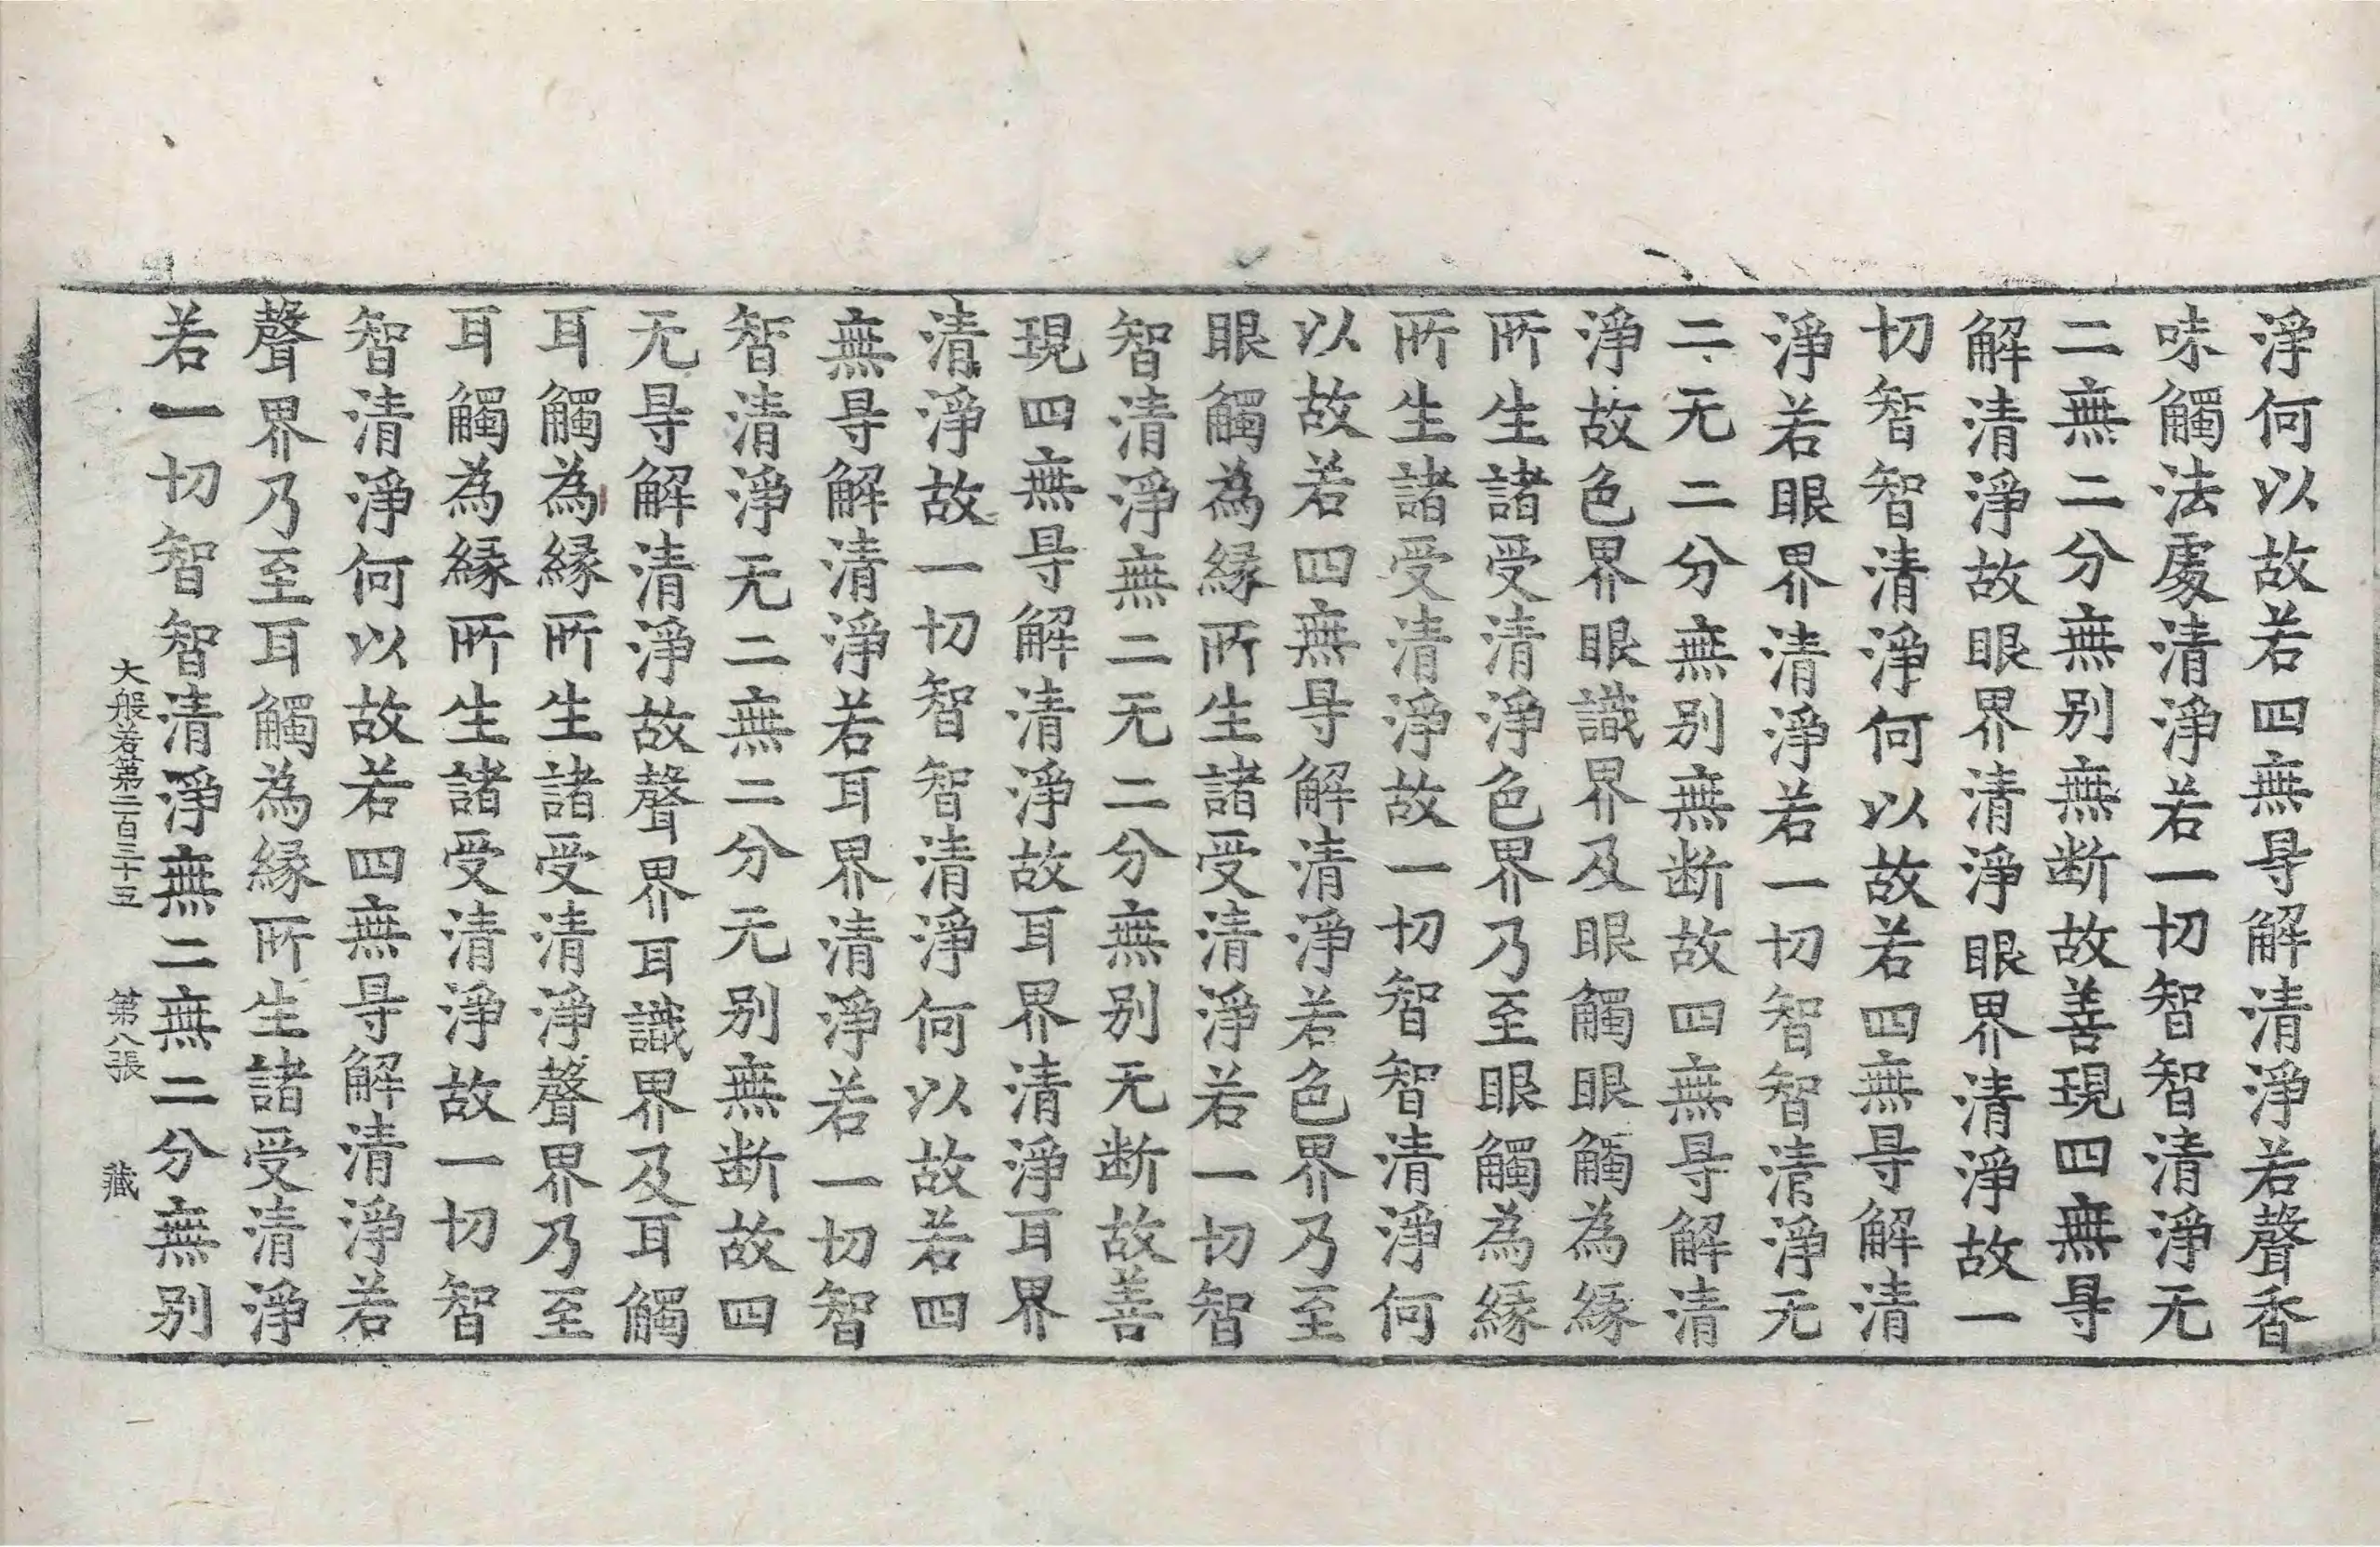 淨何以故若四無㝵解清淨若聲香
味觸法處清淨若一切智智清淨无
二無二分無别無断故善現四無㝵
解清淨故眼界清淨眼界清淨故一
切智智清淨何以故若四無㝵解清
淨若眼界清淨若一切智智清淨无
二无二分無别無断故四無㝵解清
淨故色界眼識界及眼觸眼觸為緣
所生諸受清淨色界乃至眼觸為緣
所生諸受清淨故一切智智清淨何
以故若四無㝵解清淨若色界乃至
眼觸為緣所生諸受清淨若一切智
智清淨無二无二分無别无断故善
現四無㝵解清淨故耳界清淨耳界
清淨故一切智智清淨何以故若四
無㝵解清淨若耳界清淨若一切智
智清淨无二無二分无别無断故四
无㝵解清淨故聲界耳識界及耳觸
耳觸為緣所生諸受清淨聲界乃至
耳觸為緣所生諸受清淨故一切智
智清淨何以故若四無㝵解清淨若
聲界乃至耳觸為緣所生諸受清淨
若一切智智清淨無二無二分無别
大般若第二百三十五 第八張 藏